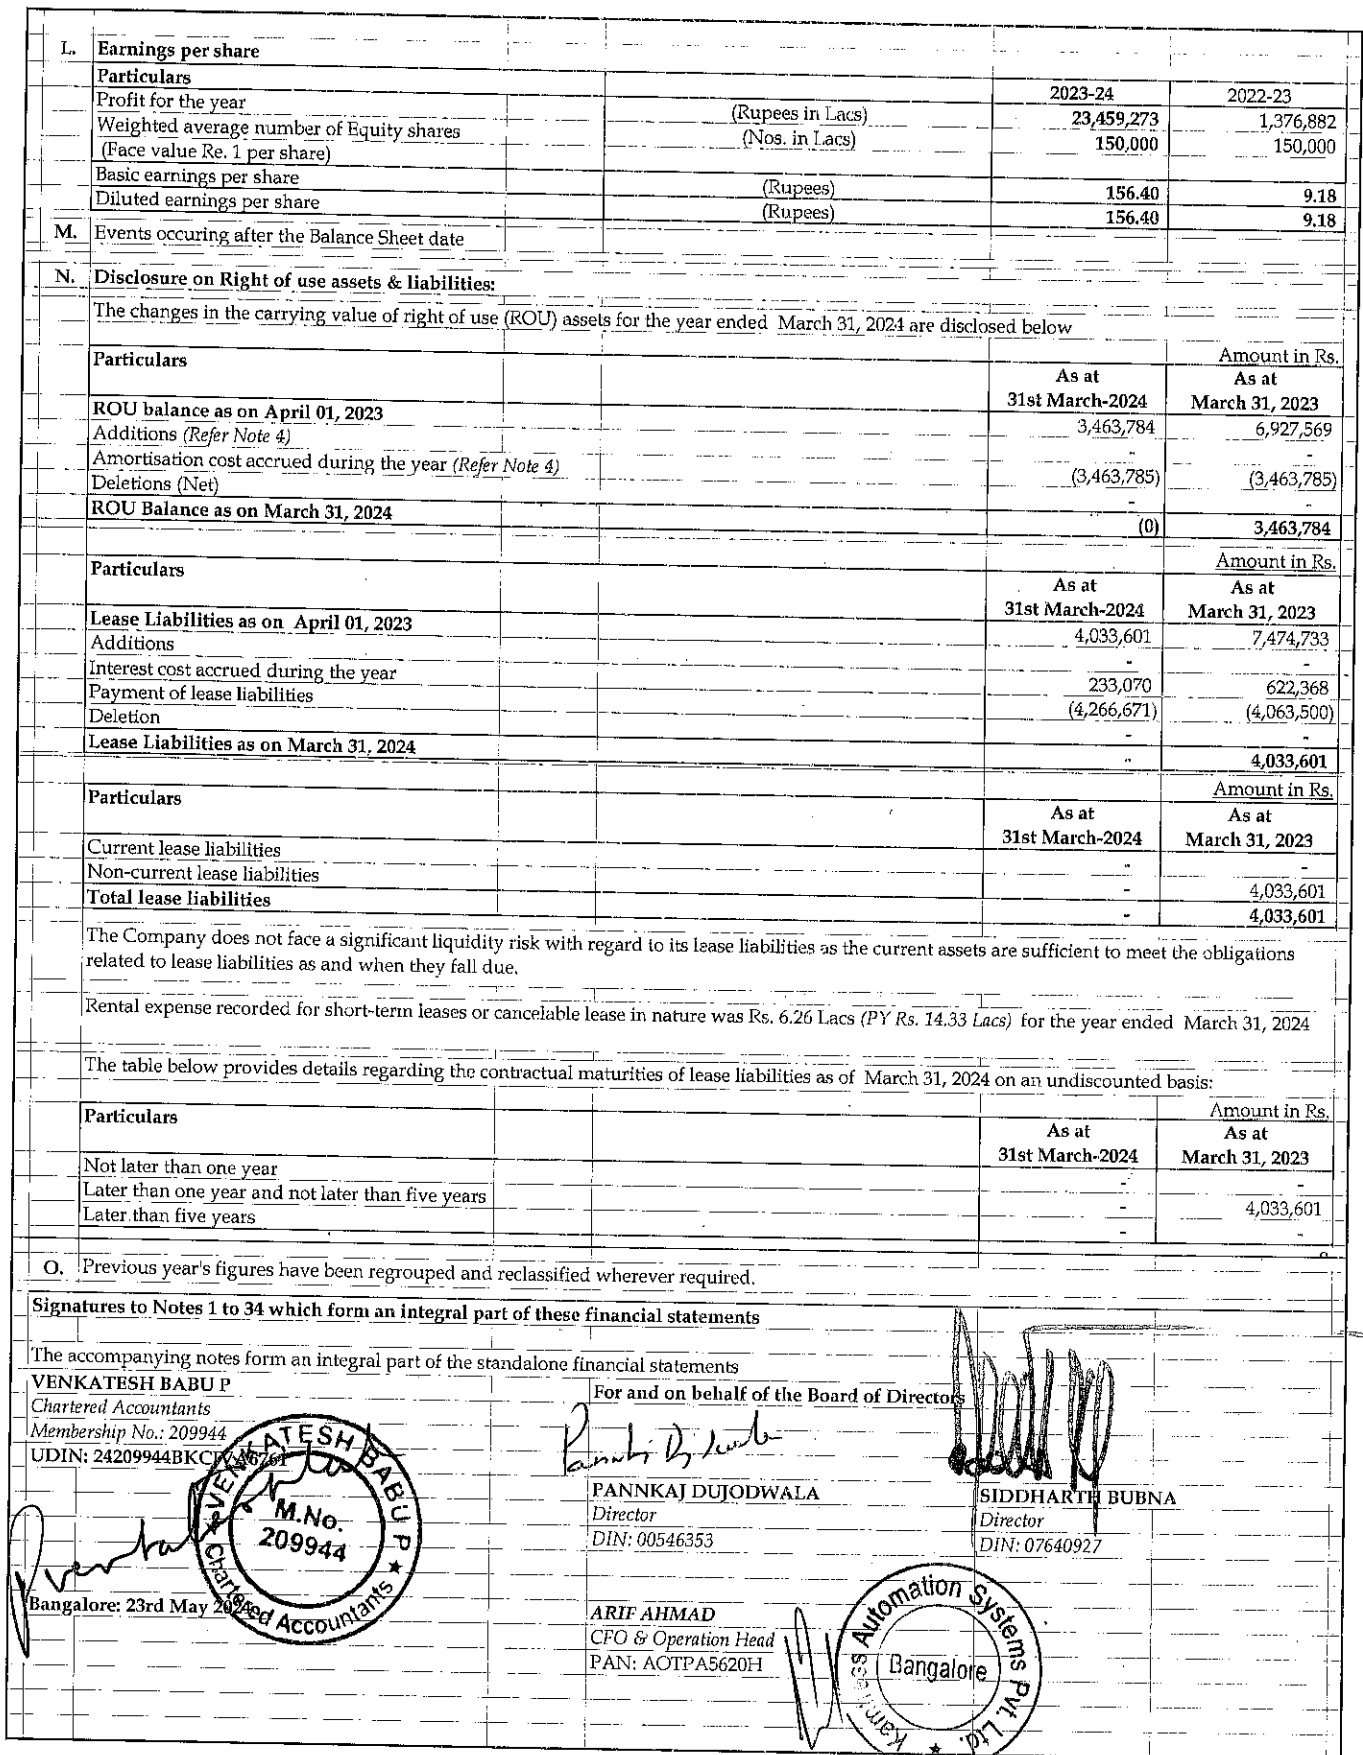 L. Earnings per share
Particulars 2023-24 2022-23
Profit for the year (Rupees in Lacs) 23,459,273 1,376,882
Weighted average number of Equity shares (Nos. in Lacs) 150,000 150,000
(Face value Re. 1 per share)
Basic earnings per share (Rupees) 156.40 9.18
Diluted earnings per share (Rupees) 156.40 9.18
M. Events occuring after the Balance Sheet date
N. Disclosure on Right of use assets & liabilities:
The changes in the carrying value of right of use (ROU) assets for the year ended March 31, 2024 are disclosed below
Amount in Rs.
Particulars As at As at
31st March-2024 March 31, 2023
ROU balance as on April 01, 2023 3,463,784 6,927,569
Additions (Refer Note 4) - -
Amortisation cost accrued during the year (Refer Note 4) (3,463,785) (3,463,785)
Deletions (Net) - -
ROU Balance as on March 31, 2024 (0) 3,463,784
Amount in Rs.
Particulars As at As at
31st March-2024 March 31, 2023
Lease Liabilities as on April 01, 2023 4,033,601 7,474,733
Additions - -
Interest cost accrued during the year 233,070 622,368
Payment of lease liabilities (4,266,671) (4,063,500)
Deletion - -
Lease Liabilities as on March 31, 2024 - 4,033,601
Amount in Rs.
Particulars As at As at
31st March-2024 March 31, 2023
Current lease liabilities - -
Non-current lease liabilities - 4,033,601
Total lease liabilities - 4,033,601
The Company does not face a significant liquidity risk with regard to its lease liabilities as the current assets are sufficient to meet the obligations
related to lease liabilities as and when they fall due.
Rental expense recorded for short-term leases or cancelable lease in nature was Rs. 6.26 Lacs (PY Rs. 14.33 Lacs) for the year ended March 31, 2024
The table below provides details regarding the contractual maturities of lease liabilities as of March 31, 2024 on an undiscounted basis:
Amount in Rs.
Particulars As at As at
31st March-2024 March 31, 2023
Not later than one year - -
Later than one year and not later than five years - 4,033,601
Later than five years - -
O. Previous year's figures have been regrouped and reclassified wherever required.
Signatures to Notes 1 to 34 which form an integral part of these financial statements
The accompanying notes form an integral part of the standalone financial statements
VENKATESH BABU P For and on behalf of the Board of Directors
Chartered Accountants
Membership No.: 209944
UDIN:
VENKATESH BABU P
M.No.
209944
Chartered Accountants
PANNKAJ DUJODWALA SIDDHARTH BUBNA
Director Director
DIN: 00546353 DIN: 07640927
Bangalore: 23rd May
ARIF AHMAD
CFO & Operation Head
PAN: AOTPA5620H
Automation Systems Pvt. Ltd.
Bangalore